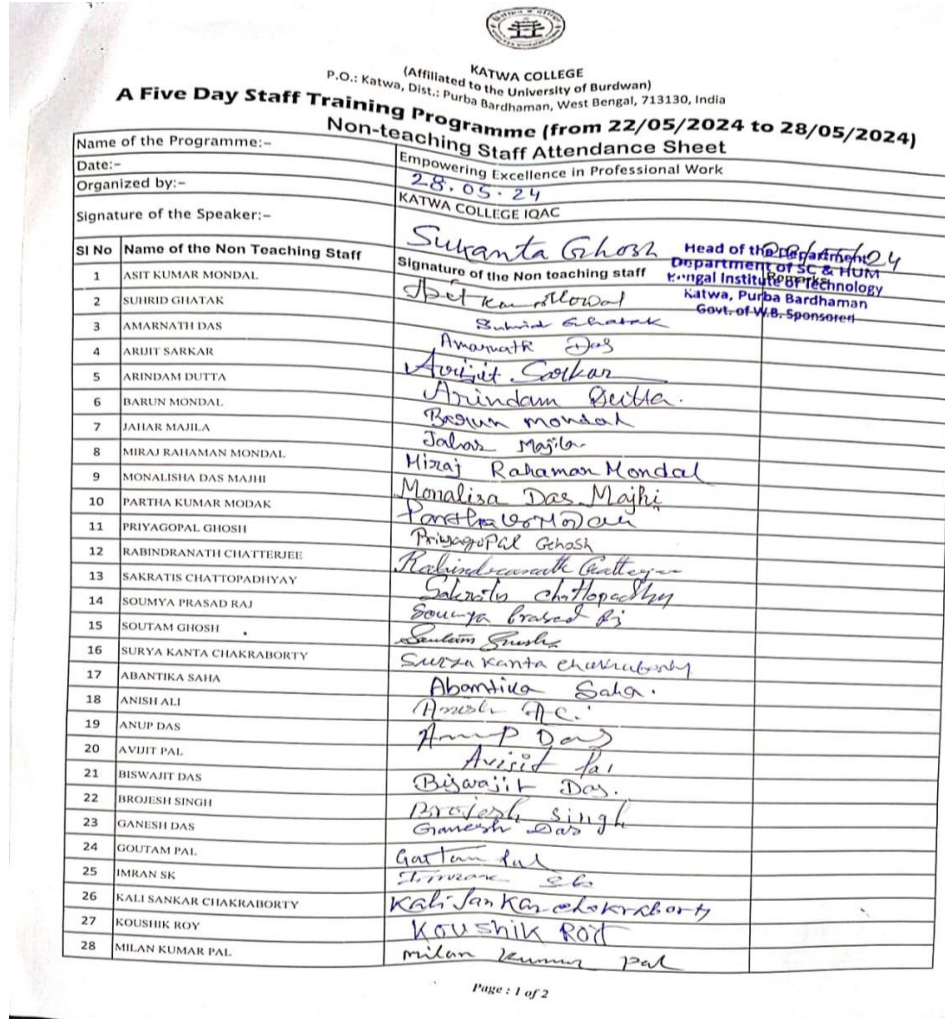 KATWA COLLEGE
(Affiliated to the University of Burdwan)
P.O.: Katwa, Dist.: Purba Bardhaman, West Bengal, 713130, India
A Five Day Staff Training Programme (from 22/05/2024 to 28/05/2024)
Non-teaching Staff Attendance Sheet
Name of the Programme:- Empowering Excellence in Professional Work
Date:- 28.05.24
Organized by:- KATWA COLLEGE IQAC
Signature of the Speaker:- Sukanta Ghosh
Head of the Department
Department of SC & HUM
Bengal Institute of Technology
Katwa, Purba Bardhaman
Govt. of W.B. Sponsored
Sl No Name of the Non Teaching Staff Signature of the Non teaching staff Remarks
1 ASIT KUMAR MONDAL
2 SUHRID GHATAK Suhrid Ghatak
3 AMARNATH DAS Amarnath Das
4 ARIJIT SARKAR Arijit Sarkar
5 ARINDAM DUTTA Arindam Dutta.
6 BARUN MONDAL Barun mondal
7 JAHAR MAJILA Jahar Majila
8 MIRAJ RAHAMAN MONDAL Miraj Rahaman Mondal
9 MONALISHA DAS MAJHI Monalisa Das Majhi
10 PARTHA KUMAR MODAK
11 PRIYAGOPAL GHOSH Priyagopal Ghosh
12 RABINDRANATH CHATTERJEE Rabindranath Chatterjee
13 SAKRATIS CHATTOPADHYAY Sakratis Chattopadhyay
14 SOUMYA PRASAD RAJ Soumya Prasad Rj
15 SOUTAM GHOSH
16 SURYA KANTA CHAKRABORTY Surya Kanta Chakraborty
17 ABANTIKA SAHA Abantika Saha.
18 ANISH ALI
19 ANUP DAS Anup Das
20 AVIJIT PAL Avijit Pal
21 BISWAJIT DAS Biswajit Das.
22 BROJESH SINGH Brojesh Singh
23 GANESH DAS Ganesh Das
24 GOUTAM PAL
25 IMRAN SK
26 KALI SANKAR CHAKRABORTY Kali Sankar chakraborty
27 KOUSHIK ROY Koushik Roy
28 MILAN KUMAR PAL milan kumar pal
Page : 1 of 2